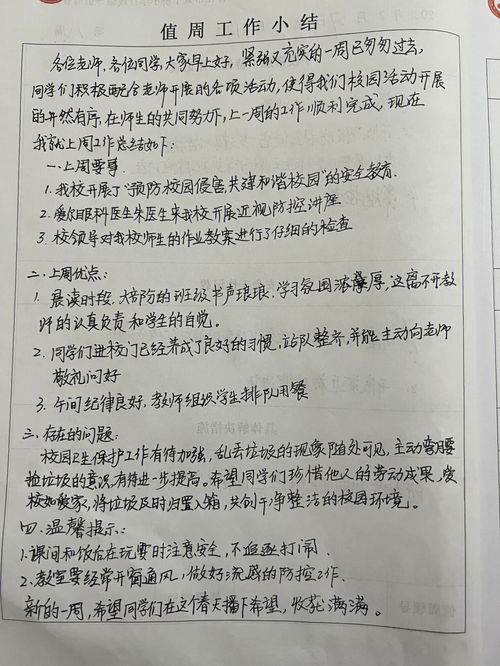 值周工作小结
各位老师、各位同学，大家早上好，紧张又充实的一周已匆匆过去，
同学们积极配合老师开展的各项活动，使得我们校园活动开展
的井然有序，在师生的共同努力下，上一周的工作顺利完成，现在
我就上周工作总结如下：
一、上周要事
1. 我校开展了“预防校园侵害，共建和谐校园”的安全教育.
2. 爱尔眼科医生朱医生来我校开展近视防控讲座
3. 校领导对我校师生的作业教案进行了仔细的检查
二、上周优点：
1. 晨读时段，大部份的班级书声琅琅，学习氛围浓厚，这离不开教
师的认真负责和学生的自觉。
2. 同学们进校门已经养成了良好的习惯，站队整齐，并能主动向老师
敬礼问好
3. 午间纪律良好，教师组织学生排队用餐
三、存在的问题：
校园卫生保护工作有待加强，乱丢垃圾的现象随处可见，主动弯腰
捡垃圾的意识有待进一步提高。希望同学们珍惜他人的劳动成果，爱
校如爱家，将垃圾及时归置入箱，共创干净整洁的校园环境。
四、温馨提示：
1. 课间和饭后在玩耍时注意安全，不追逐打闹.
2. 教室要经常开窗通风，做好流感的防控工作.
新的一周，希望同学们在这个春天播下希望，收获满满。